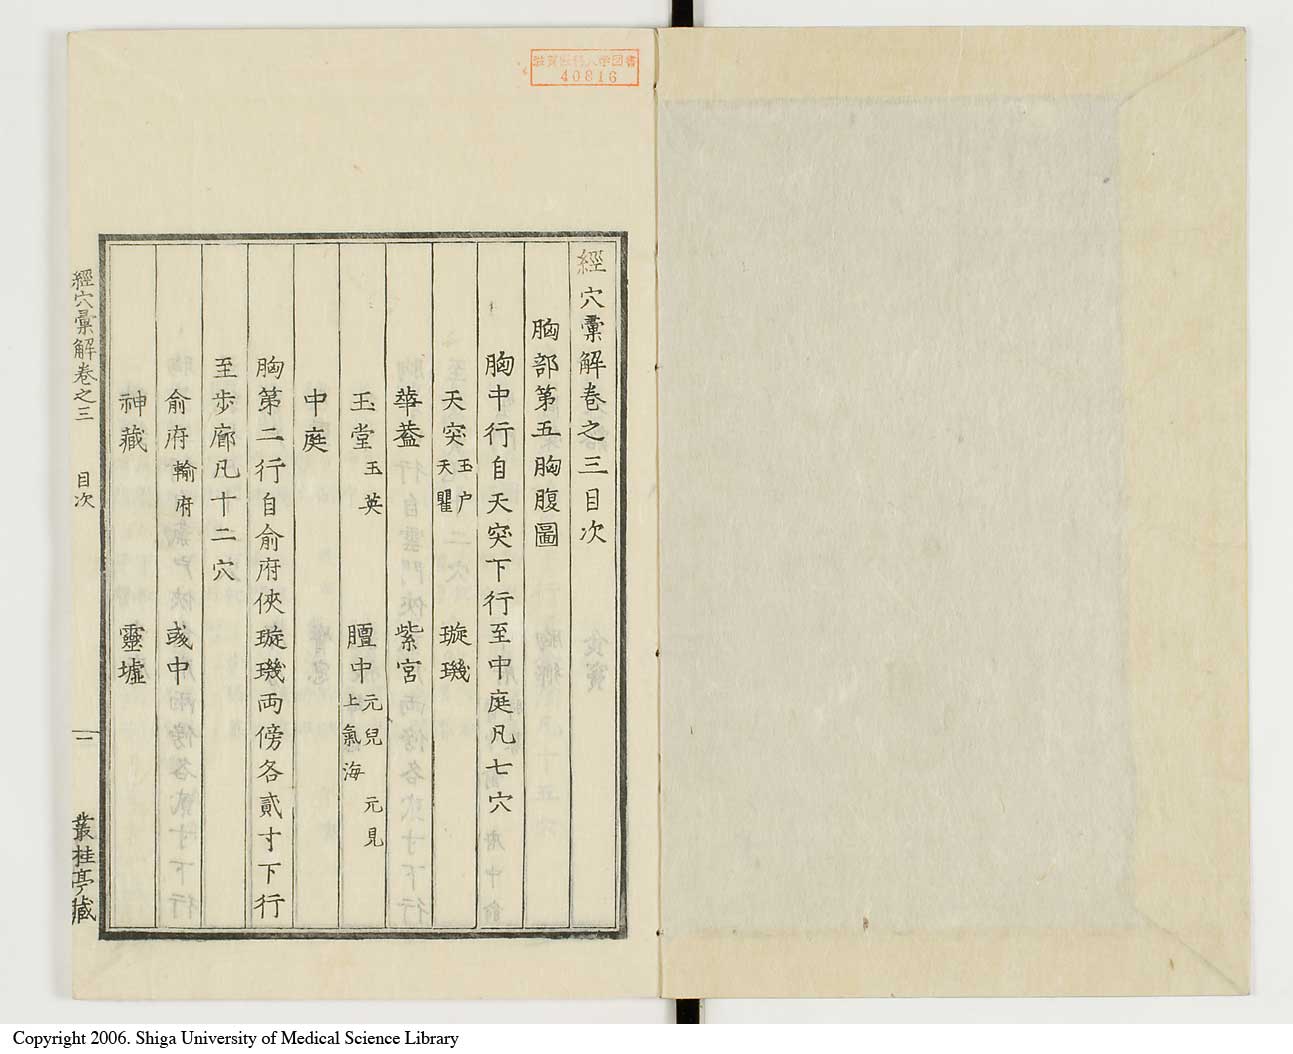 滋賀医科大学図書
40816
經穴彙解卷之三目次
胸部第五胸腹圖
胸中行自天突下行至中庭凡七穴
天突 玉户 天瞿 璇璣
華葢 紫宮
玉堂 玉英 膻中 元兒 上氣海 元見
中庭
胸第二行自俞府俠璇璣両傍各貳寸下行
至步廊凡十二穴
俞府 輸府 彧中
神藏 靈墟
經穴彙解卷之三 目次 一 叢桂亭藏
Copyright 2006. Shiga University of Medical Science Library